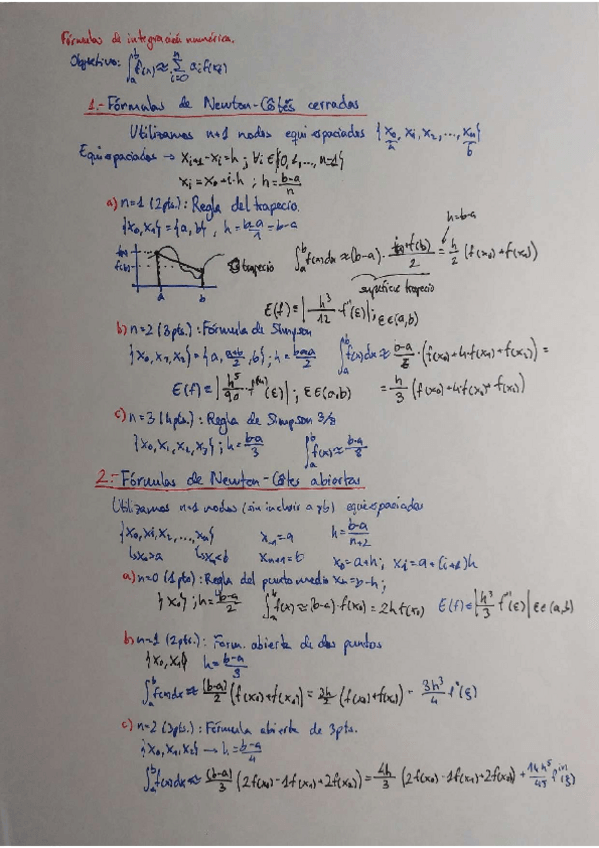 Fórmulas de integración numérica.
Objetivo: ∫_a^b f(x) ≈ Σ_{i=0}^n a_i f(x_i)
1.- Fórmulas de Newton-Côtes cerradas
Utilizamos n+1 nodos equiespaciados {x_0, x_1, x_2, ..., x_n}
a b
Equiespaciados → x_{i+1} - x_i = h ; ∀i ∈ {0, 1, ..., n-1}
x_i = x_0 + i·h ; h = (b-a)/n
a) n=1 (2pts.): Regla del trapecio.
{x_0, x_1} = {a, b} , h = (b-a)/1 = b-a
h=b-a
f(b)
a b
trapecio
∫_a^b f(x)dx ≈ (b-a) · (f(a)+f(b))/2 = h/2 (f(x_0)+f(x_1))
superficie trapecio
E(f) = |h^3/12 · f''(ε)| ; ε∈(a,b)
b) n=2 (3pts.): Fórmula de Simpson
{x_0, x_1, x_2} = {a, (a+b)/2, b} ; h = (b-a)/2
∫_a^b f(x)dx ≈ (b-a)/6 · (f(x_0)+4f(x_1)+f(x_2)) =
E(f) = |h^5/90 · f^(IV)(ε)| ; ε∈(a,b)
= h/3 (f(x_0)+4f(x_1)+f(x_2))
c) n=3 (4pts.): Regla de Simpson 3/8
{x_0, x_1, x_2, x_3} ; h = (b-a)/3
∫_a^b f(x) ≈ (b-a)/8
2.- Fórmulas de Newton-Côtes abiertas
Utilizamos n+1 nodos (sin incluir a y b) equiespaciados
{x_0, x_1, x_2, ..., x_n}
x_{-1} = a
h = (b-a)/(n+2)
↳x_0>a ↳x_n<b
x_{n+1} = b
x_0 = a+h ; x_i = a+(i+1)h
a) n=0 (1pto): Regla del punto medio x_n = b-h ;
{x_0} ; h = (b-a)/2
∫_a^b f(x) ≈ (b-a)·f(x_0) = 2h f(x_0)
E(f) = |h^3/3 f''(ε)| ε∈(a,b)
b) n=1 (2pts.): Form. abierta de dos puntos
{x_0, x_1} h = (b-a)/3
∫_a^b f(x)dx ≈ (b-a)/2 (f(x_0)+f(x_1)) = 3h/2 (f(x_0)+f(x_1)) - 3h^3/4 f''(ξ)
c) n=2 (3pts.): Fórmula abierta de 3pts.
{x_0, x_1, x_2} → h = (b-a)/4
∫_a^b f(x)dx ≈ (b-a)/3 (2f(x_0)-1f(x_1)+2f(x_2)) = 4h/3 (2f(x_0)-1f(x_1)+2f(x_2)) + 14h^5/45 f^IV(ξ)